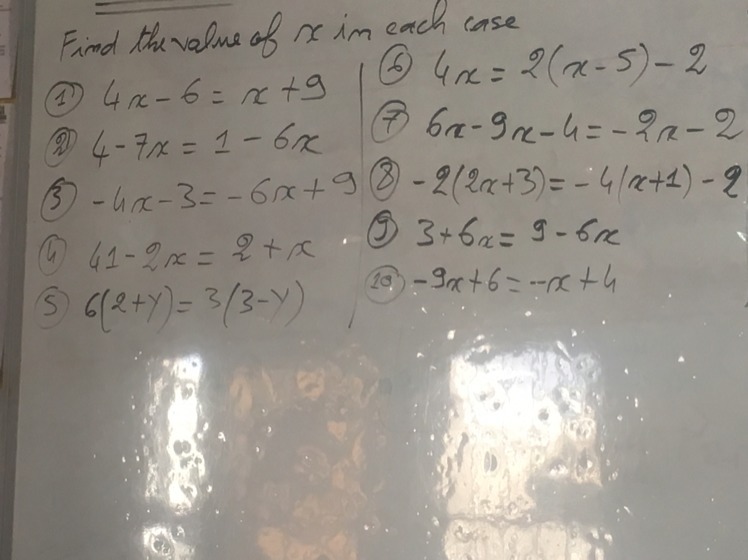 Find the value of x in each case
① 4x - 6 = x + 9
② 4 - 7x = 1 - 6x
③ -4x - 3 = -6x + 9
④ 41 - 2x = 2 + x
⑤ 6(2+y) = 3(3-y)
⑥ 4x = 2(x - 5) - 2
⑦ 6x - 9x - 4 = -2x - 2
⑧ -2(2x+3) = -4(x+1) - 2
⑨ 3 + 6x = 9 - 6x
⑩ -9x + 6 = -x + 4